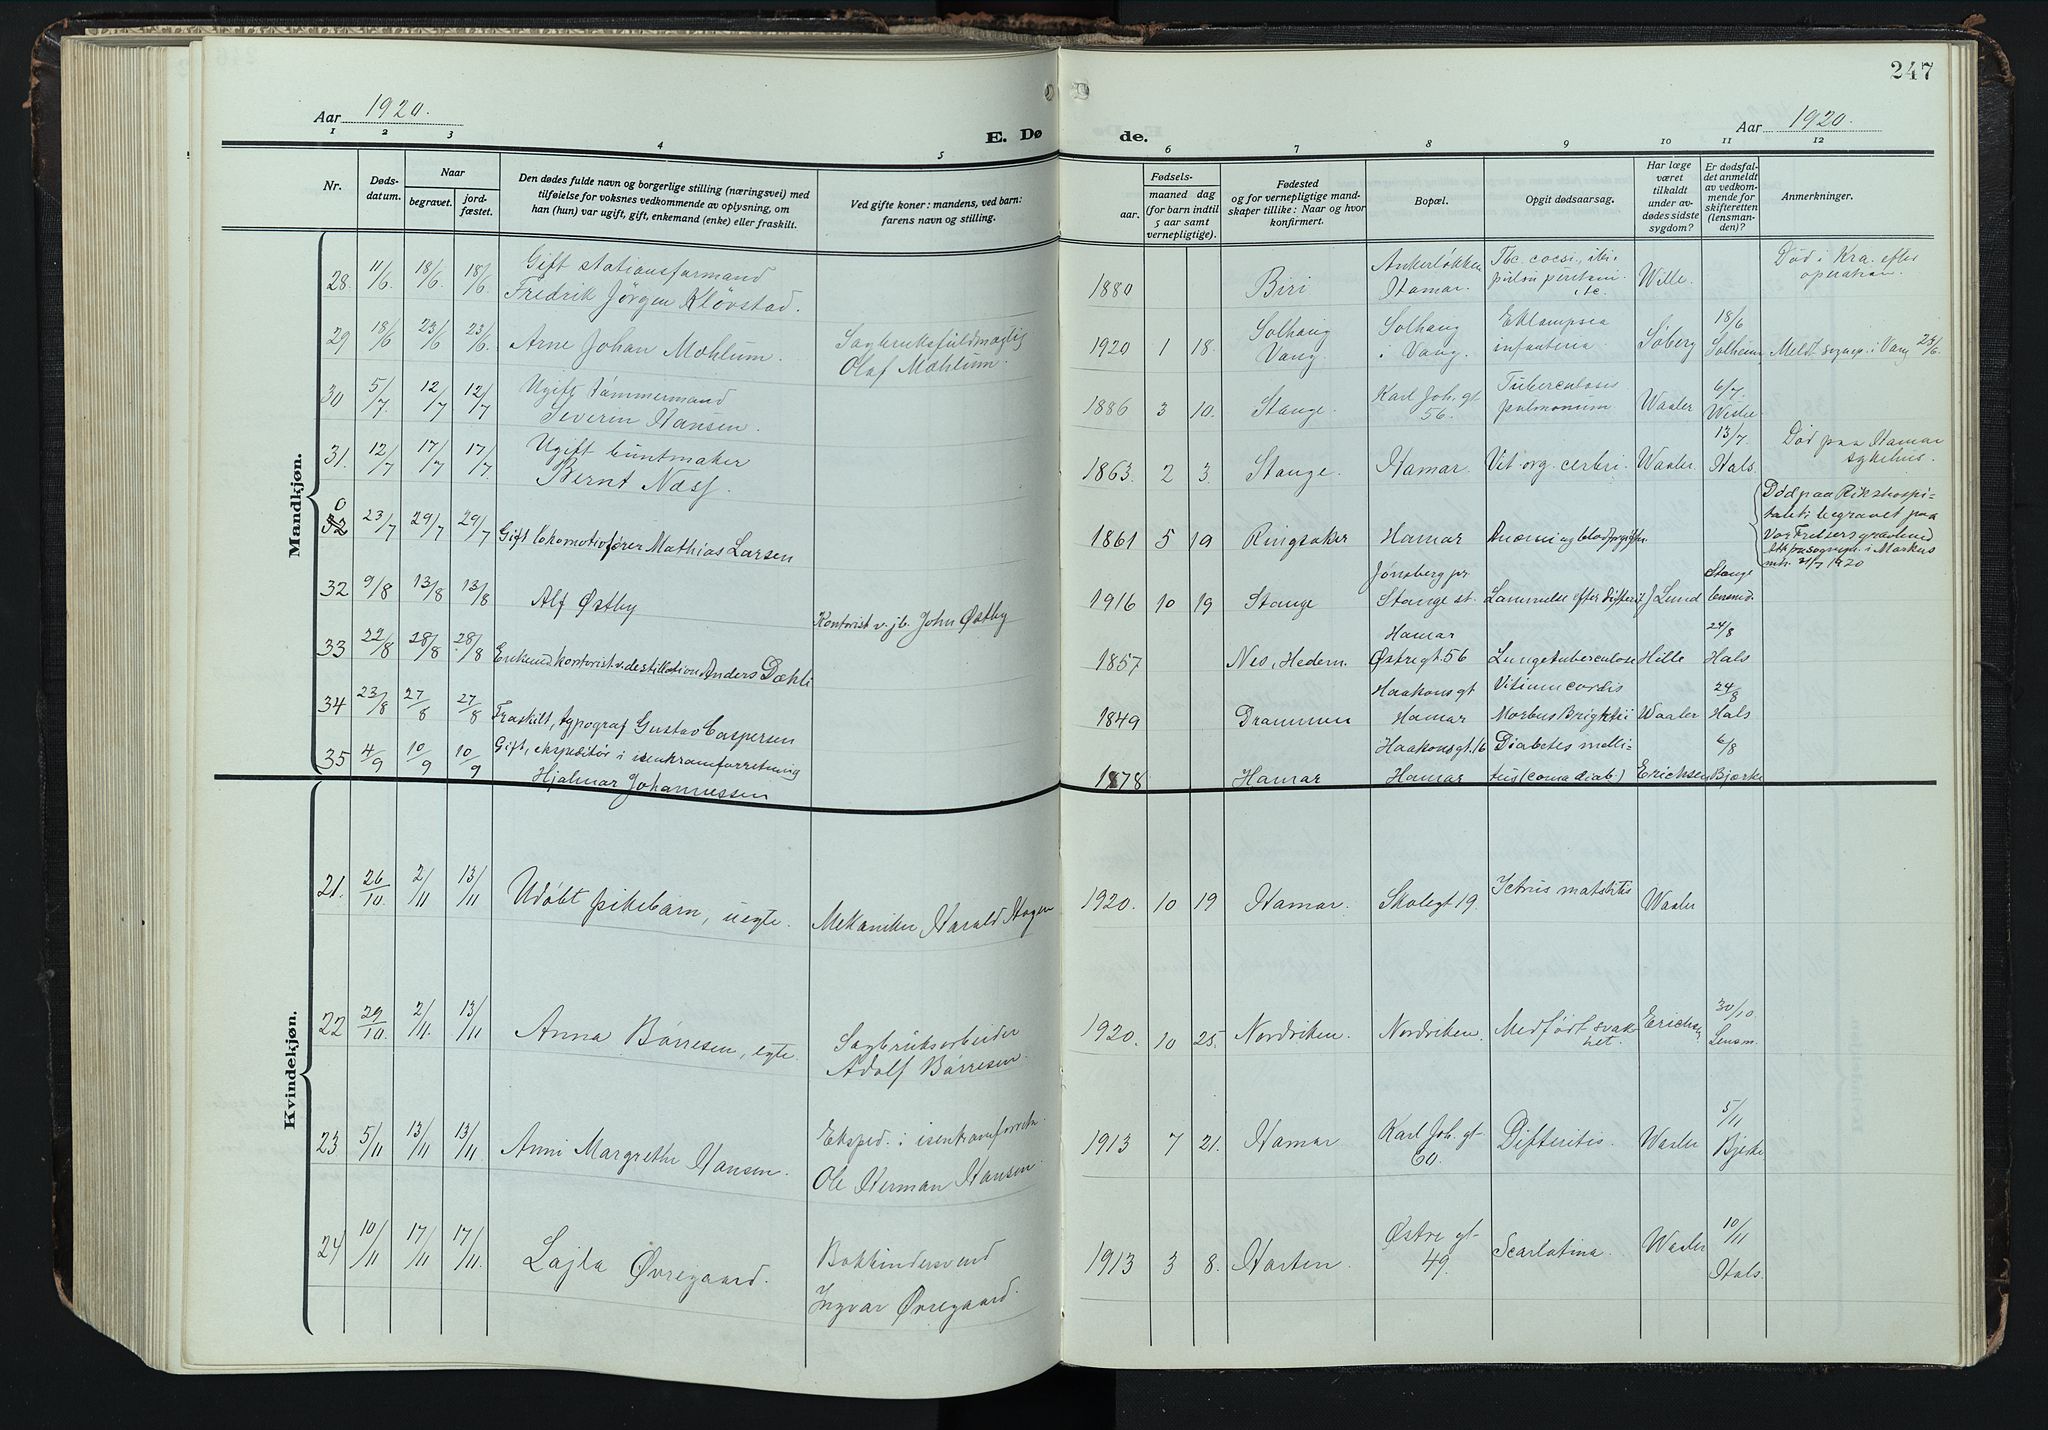 247
Aar 1920.
E. Dø
de.
Aar 1920.
1 2 3 4 5 6 7 8 9 10 11 12
Nr.
Døds-
datum.
Naar
begravet.
jord-
fæstet.
Den dødes fulde navn og borgerlige stilling (næringsvei) med
tilføielse for voksnes vedkommende av oplysning, om
han (hun) var ugift, gift, enkemand (enke) eller fraskilt.
Ved gifte koner: mandens, ved barn:
farens navn og stilling.
Fødsels-
aar.
maaned
dag
(for barn indtil
5 aar samt
vernepligtige).
Fødested
og for vernepligtige mand-
skaper tillike: Naar og hvor
konfirmert.
Bopæl.
Opgit dødsaarsag.
Har læge
været
tilkaldt
under av-
dødes sidste
sygdom?
Er dødsfal-
det anmeldt
av vedkom-
mende for
skifteretten
(lensman-
den)?
Anmerkninger.
Mandkjøn.
28. 11/6. 18/6. 18/6. Gift stationsformand
Fredrik Jørgen Kløvstad.
1880 Biri Ankerløkken
Hamar. Wille. Død i Kra. efter
operation.
29 18/6 23/6 23/6. Arne Johan Mohlum. Sagbruksfuldmægtig
Olaf Mohlum.
1920 1 18. Solhaug
Vang. Solhaug
i Vang. Eklampsia
infanteria. Søberg 18/6
Solheim Meldt sognep. i Vang 23/6.
30 5/7. 12/7 12/7 Ugift tømmermand
Severin Hansen.
1886 3 10. Stange. Karl Joh. gt
56. Tuberculosis
pulmonum Waaler 6/7
31. 12/7 17/7 17/7 Ugift buntmaker
Bernt Næss.
1863. 2 3. Stange. Hamar. Vit. org. cerbri. Waaler. 13/7.
Hals. Død paa Hamar
sykehus.
0
32 23/7 29/7 29/7 Gift lokomotivfører Mathias Larsen
1861 5 19 Ringsaker Hamar
Død paa Rikshospi-
talet; begravet paa
Vor Frelsers gravlund
32 9/8 13/8 13/8 Alf Østby Kontorist v. jb. John Østby
1916 10 19 Stange Jønsberg pr.
Stange st. Lammelse efter difteri J Lund Stange
lensmd.
33 22/8 28/8 28/8 Enkemd kontorist v. destillation Anders Dæhli
1857 Nes, Hedem. Hamar
Østregt. 56 Lungetuberculose Hille 24/8
Hals
34 23/8 27/8 27/8 Fraskilt, typograf Gustav Caspersen
1849 Drammen Haakonsgt
Hamar Vitium cordis
Morbus Brightii Waaler 24/8
Hals
35 4/9 10/9 10/9 Gift, ekspeditør i isenkramforretning
Hjalmar Johannessen
1878 Hamar Haakonsgt. 16
Hamar Diabetes melli-
tus (coma diab) Erichsen 6/8
Bjørke
Kvindekjøn.
21. 26/10 2/11 13/11 Udøbt pikebarn, uegte. Mekaniker Harald Hagen
1920. 10 19 Hamar. Skolegt 19. Waaler
22 29/10. 2/11. 13/11 Anna Børresen, egte. Sagbruksarbeider
Adolf Børresen.
1920. 10 25. Nordviken. Nordviken. Medfødt svak-
het. Erichsen 30/10.
Lensm.
23 5/11 13/11 13/11 Anni Margrethe Hansen. Eksped. i isenkramforretn.
Ole Herman Hansen.
1913 7 21. Hamar Karl Joh. gt
60. Difteritis. Waaler 5/11
Bjerke
24 10/11 17/11 17/11 Lajla Øvregaard. Bokbindersvend
Ingvar Øvregaard.
1913 3 8. Horten. Østre gt
49. Scarlatina. Waaler 10/11
Hals.